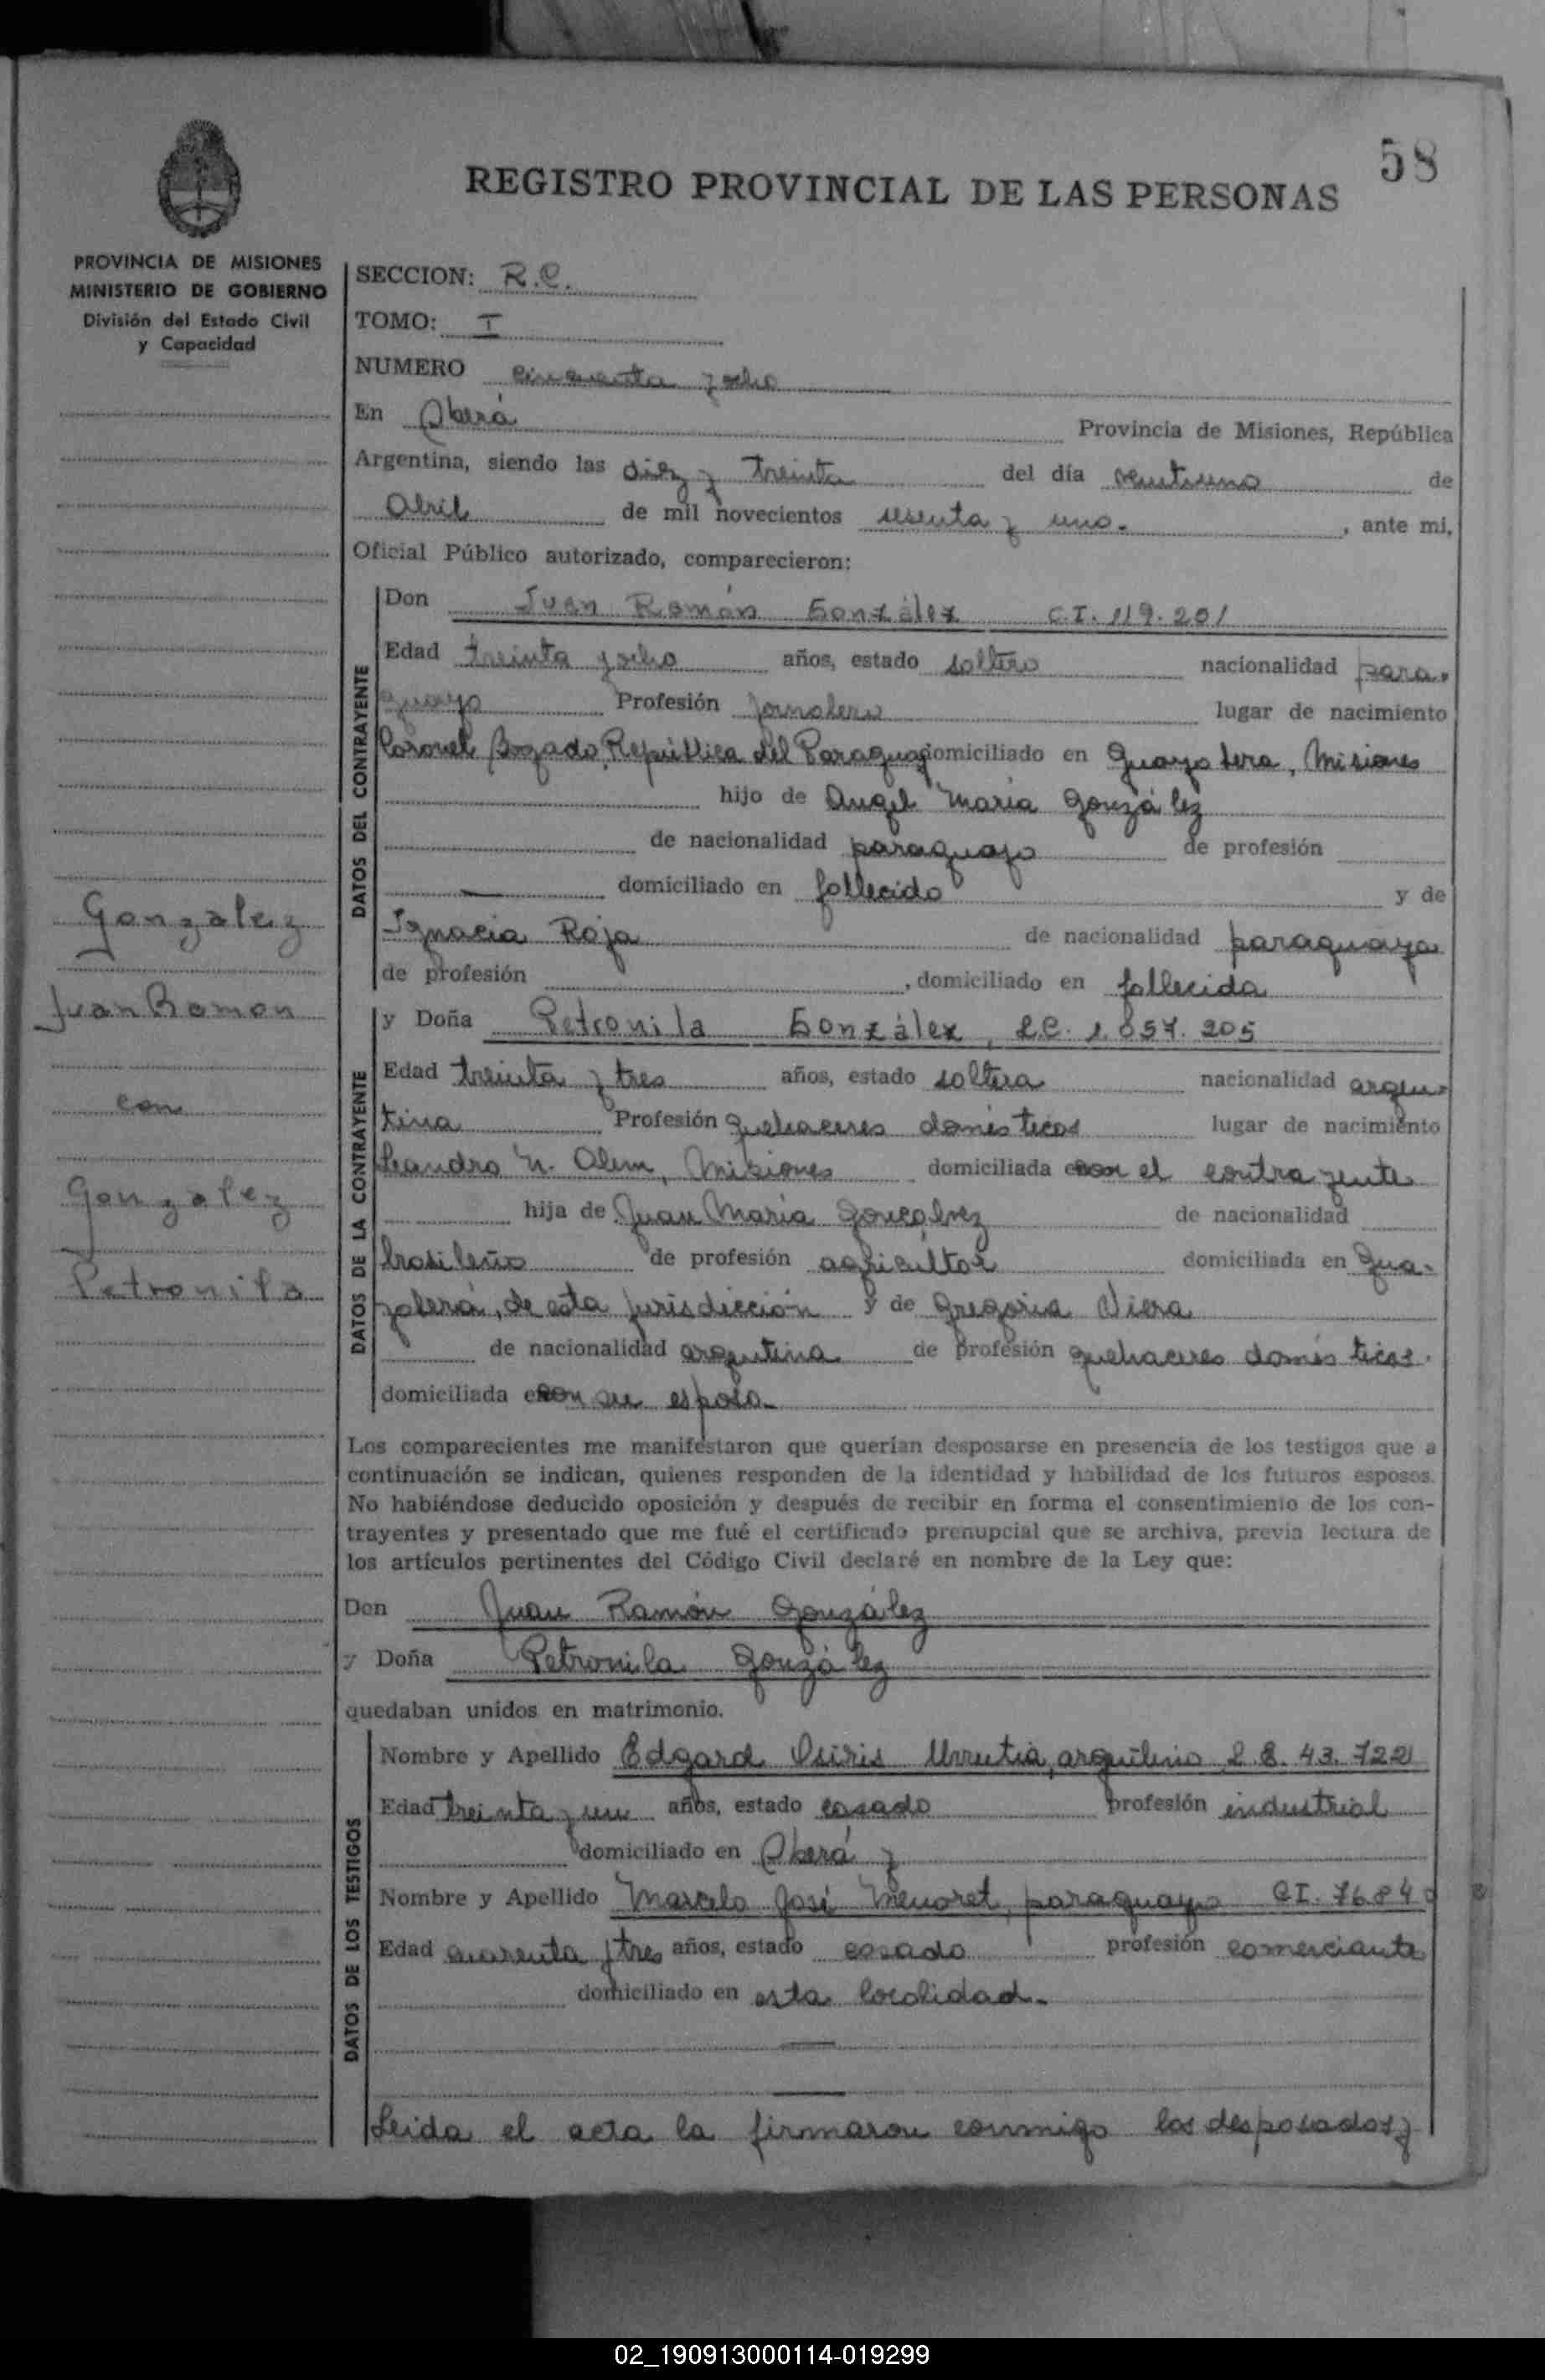 58
REGISTRO PROVINCIAL DE LAS PERSONAS
PROVINCIA DE MISIONES
MINISTERIO DE GOBIERNO
División del Estado Civil
y Capacidad
SECCION: R.C.
TOMO: I
NUMERO cincuenta y ocho
En Oberá Provincia de Misiones, República
Argentina, siendo las diez y treinta del día veintiuno de
Abril de mil novecientos sesenta y uno. , ante mi,
Oficial Público autorizado, comparecieron:
DATOS DEL CONTRAYENTE
Don Juan Román González C.I. 119.201
Edad treinta y ocho años, estado soltero nacionalidad para-
guayo Profesión jornalero lugar de nacimiento
Coronel Bogado, República del Paraguay domiciliado en Guayabera, Misiones
hijo de Angel María González
de nacionalidad paraguayo de profesión
— domiciliado en fallecido y de
Ignacia Roja de nacionalidad paraguaya
de profesión , domiciliado en fallecida
González
Juan Ramon
con
González
Petronila
DATOS DE LA CONTRAYENTE
y Doña Petronila González, L.C. 1.857.205
Edad treinta y tres años, estado soltera nacionalidad argen-
tina Profesión quehaceres domésticos lugar de nacimiento
Leandro N. Alem, Misiones domiciliada con el contrayente
hija de Juan María Gonçalvez de nacionalidad
brasileño de profesión agricultor domiciliada en Gua-
yaberá, de esta jurisdicción y de Gregoria Viera
de nacionalidad argentina de profesión quehaceres domésticos.
domiciliada con su esposo.
Los comparecientes me manifestaron que querían desposarse en presencia de los testigos que a
continuación se indican, quienes responden de la identidad y habilidad de los futuros esposos.
No habiéndose deducido oposición y después de recibir en forma el consentimiento de los con-
trayentes y presentado que me fué el certificado prenupcial que se archiva, previa lectura de
los artículos pertinentes del Código Civil declaré en nombre de la Ley que:
Don Juan Ramón González
y Doña Petronila González
quedaban unidos en matrimonio.
DATOS DE LOS TESTIGOS
Nombre y Apellido Edgard Osiris Urrutia, argentino 2.8.43.722
Edad treinta y un años, estado casado profesión industrial
domiciliado en Oberá y
Nombre y Apellido Marcelo José Menoret, paraguayo CI. 76840
Edad cuarenta y tres años, estado casado profesión comerciante
domiciliado en esta localidad.
Leida el acta la firmaron conmigo los desposados y
02_190913000114-019299